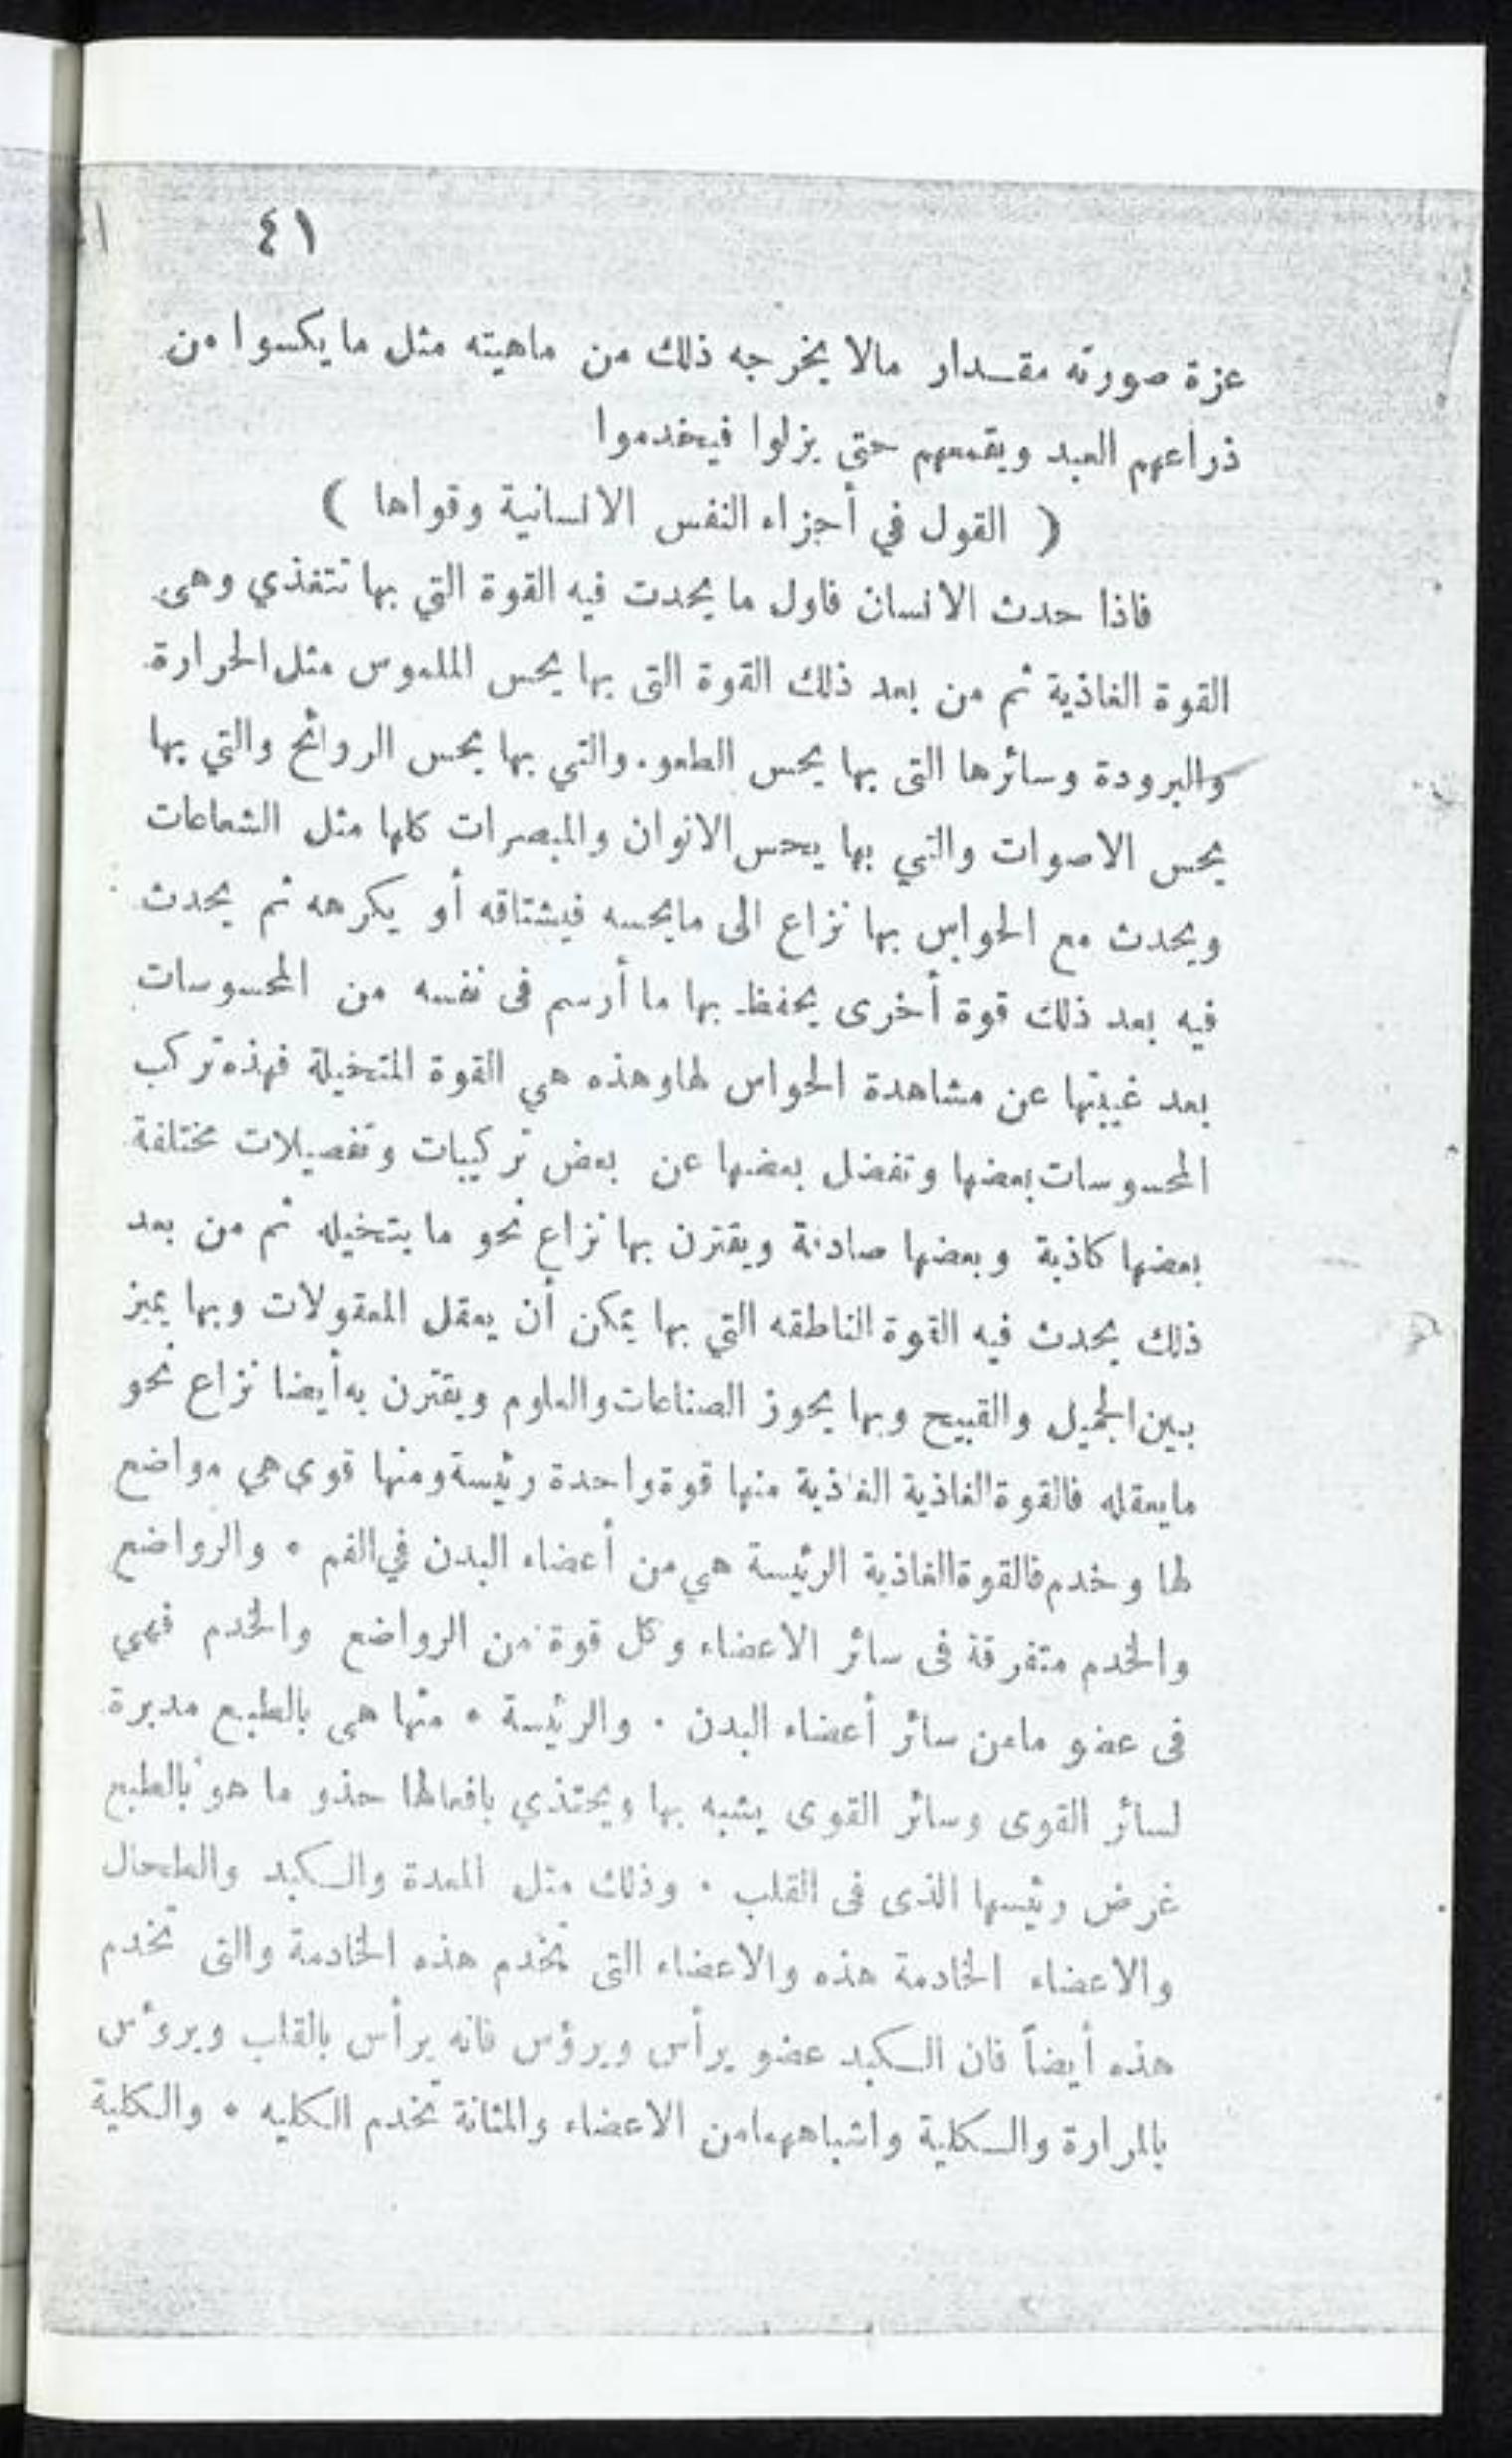 ٤١
عزة صورته مقدار مالا يخرجه ذلك من ماهيته مثل ما يكسوا من
ذراعهم العبد ويقمعهم حتى يزلوا فيخدموا
( القول في أجزاء النفس الانسانية وقواها )
فاذا حدث الانسان فاول ما يحدث فيه القوة التي بها تتغذي وهى
القوة الغاذية ثم من بعد ذلك القوة التى بها يحس الملموس مثل الحرارة
والبرودة وسائرها التى بها يحس الطعو. والتي بها يحس الروائح والتي بها
يحس الاصوات والتي بها يحس الانوان والمبصرات كلها مثل الشعاعات
ويحدث مع الحواس بها نزاع الى مايحسه فيشتاقه أو يكرهه ثم يحدث
فيه بعد ذلك قوة أخرى يحفظ بها ما أرسم فى نفسه من المحسوسات
بعد غيبتها عن مشاهدة الحواس لها وهذه هي القوة المتخيلة فهذه تركب
المحسوسات بعضها وتفضل بعضها عن بعض تركيبات وتفصيلات مختلفة
بعضها كاذبة وبعضها صادقة ويقترن بها نزاع نحو ما يتخيله ثم من بعد
ذلك يحدث فيه القوة الناطقه التي بها يمكن أن يعقل المعقولات وبها يميز
بين الجميل والقبيح وبها يحوز الصناعات والعلوم ويقترن به أيضا نزاع نحو
مايعقله فالقوة الغاذية الغاذية منها قوة واحدة رئيسة ومنها قوى هي مواضع
لها وخدم فالقوة الغاذية الرئيسة هي من أعضاء البدن في الفم ٠ والرواضع
والخدم متفرقة فى سائر الاعضاء وكل قوة من الرواضع والخدم فهي
فى عضو مامن سائر أعضاء البدن ٠ والرئيسة ٠ منها هى بالطبع مدبرة
لسائر القوى وسائر القوى يشبه بها ويحتذي بافعالها حذو ما هو بالطبع
غرض رئيسها الذى فى القلب ٠ وذلك مثل المعدة والكبد والطحال
والاعضاء الخادمة هذه والاعضاء التى تخدم هذه الخادمة والتى تخدم
هذه أيضاً فان الكبد عضو يرأس ويرؤس فانه يرأس بالقلب ويرؤس
بالمرارة والكلية واشباههمامن الاعضاء والمثانة تخدم الكليه ٠ والكلية